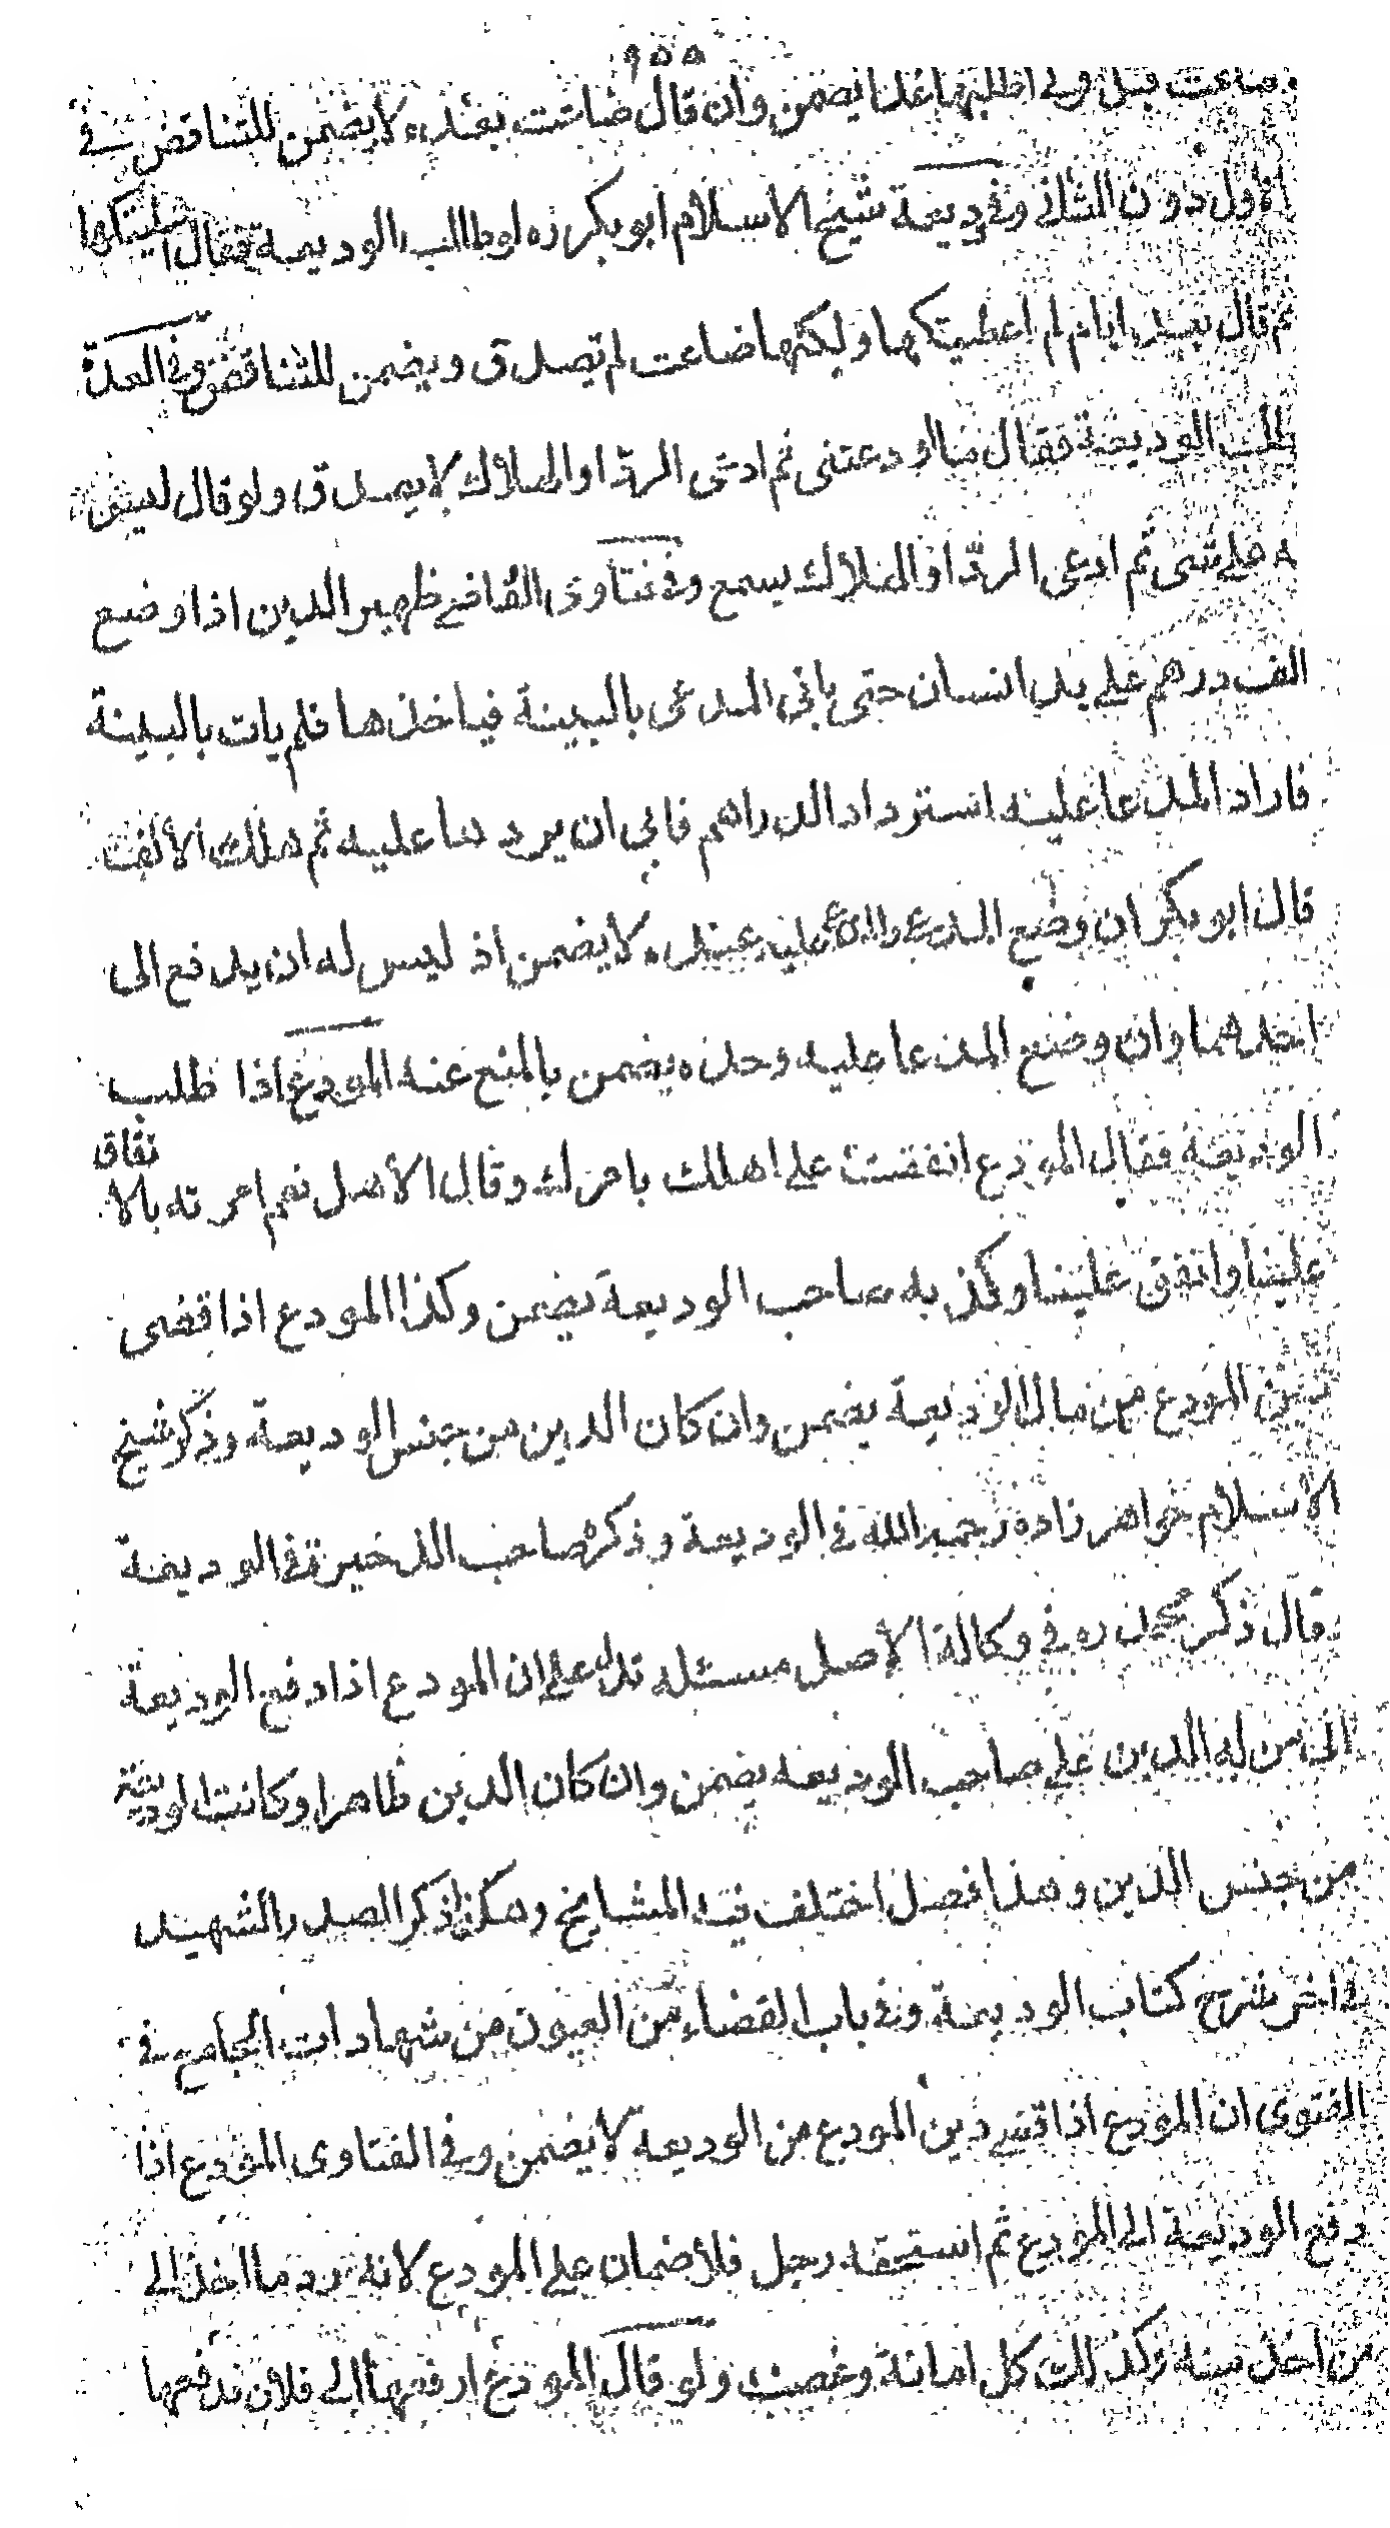 ٩٥٥
ضاعت قبل قولى اطلبها غدا يضمن وان قال ضاعت بعده لا يضمن للتناقض فى
الاول دون الثانى وفى وديعة شيخ الاسلام ابو بكر ره لو طالب الوديعة فقال اعطيتكها
ثم قال بعد ايام لم اعطيتكها ولكنها ضاعت لم يصدق ويضمن للتناقض وفى العدة
طلب الوديعة فقال ما اودعتنى ثم ادعى الرد او الهلاك لا يصدق ولو قال ليس
له على شى ثم ادعى الرد او الهلاك يسمع وفى فتاوى القاضى ظهير الدين اذا وضع
الف درهم على يد انسان حتى ياتى المدعى بالبينة فياخذها فلم يات بالبينة
فاراد المدعا عليه استرداد الدراهم فابى ان يردها عليه ثم هلك الالف
قال ابو بكر ان وضع المدعى والمدعى عليه عنده لا يضمن اذ ليس له ان يدفع الى
احدهما وان وضع المدعا عليه وحده يضمن بالمنع عنه المودع اذا طلب
الوديعة فقال المودع انفقت على اهلك بامرك وقال الاهل نعم امرته بالا نفاق
علينا وانفق علينا وكذبه صاحب الوديعة يضمن وكذا المودع اذا قضى
دين المودع من مال الوديعة يضمن وان كان الدين من جنس الوديعة وذكر شيخ
الاسلام خواهر زاده رحمه الله فى الوديعة وذكر صاحب الذخيرة فى الوديعة
قال ذكر محمد ره فى وكالة الاصل مسئله تدل على ان المودع اذا دفع الوديعة
الى من له الدين على صاحب الوديعه يضمن وان كان الدين ظاهرا وكانت الوديعة
من جنس الدين وهذا فصل اختلف فيه المشايخ وهكذا ذكر الصدر الشهيد
فى اخر شرح كتاب الوديعة وفى باب القضاء من العيون من شهادات الجامع فى
الفتوى ان المودع اذا قضى دين المودع من الوديعه لا يضمن وفى الفتاوى المودع اذا
دفع الوديعة الى المودع ثم استحقه رجل فلا ضمان على المودع لانه رد ما اخذ الى
من اخذ منه وكذلك كل امانة وغصب ولو قال المودع ادفعها الى فلان فدفعها